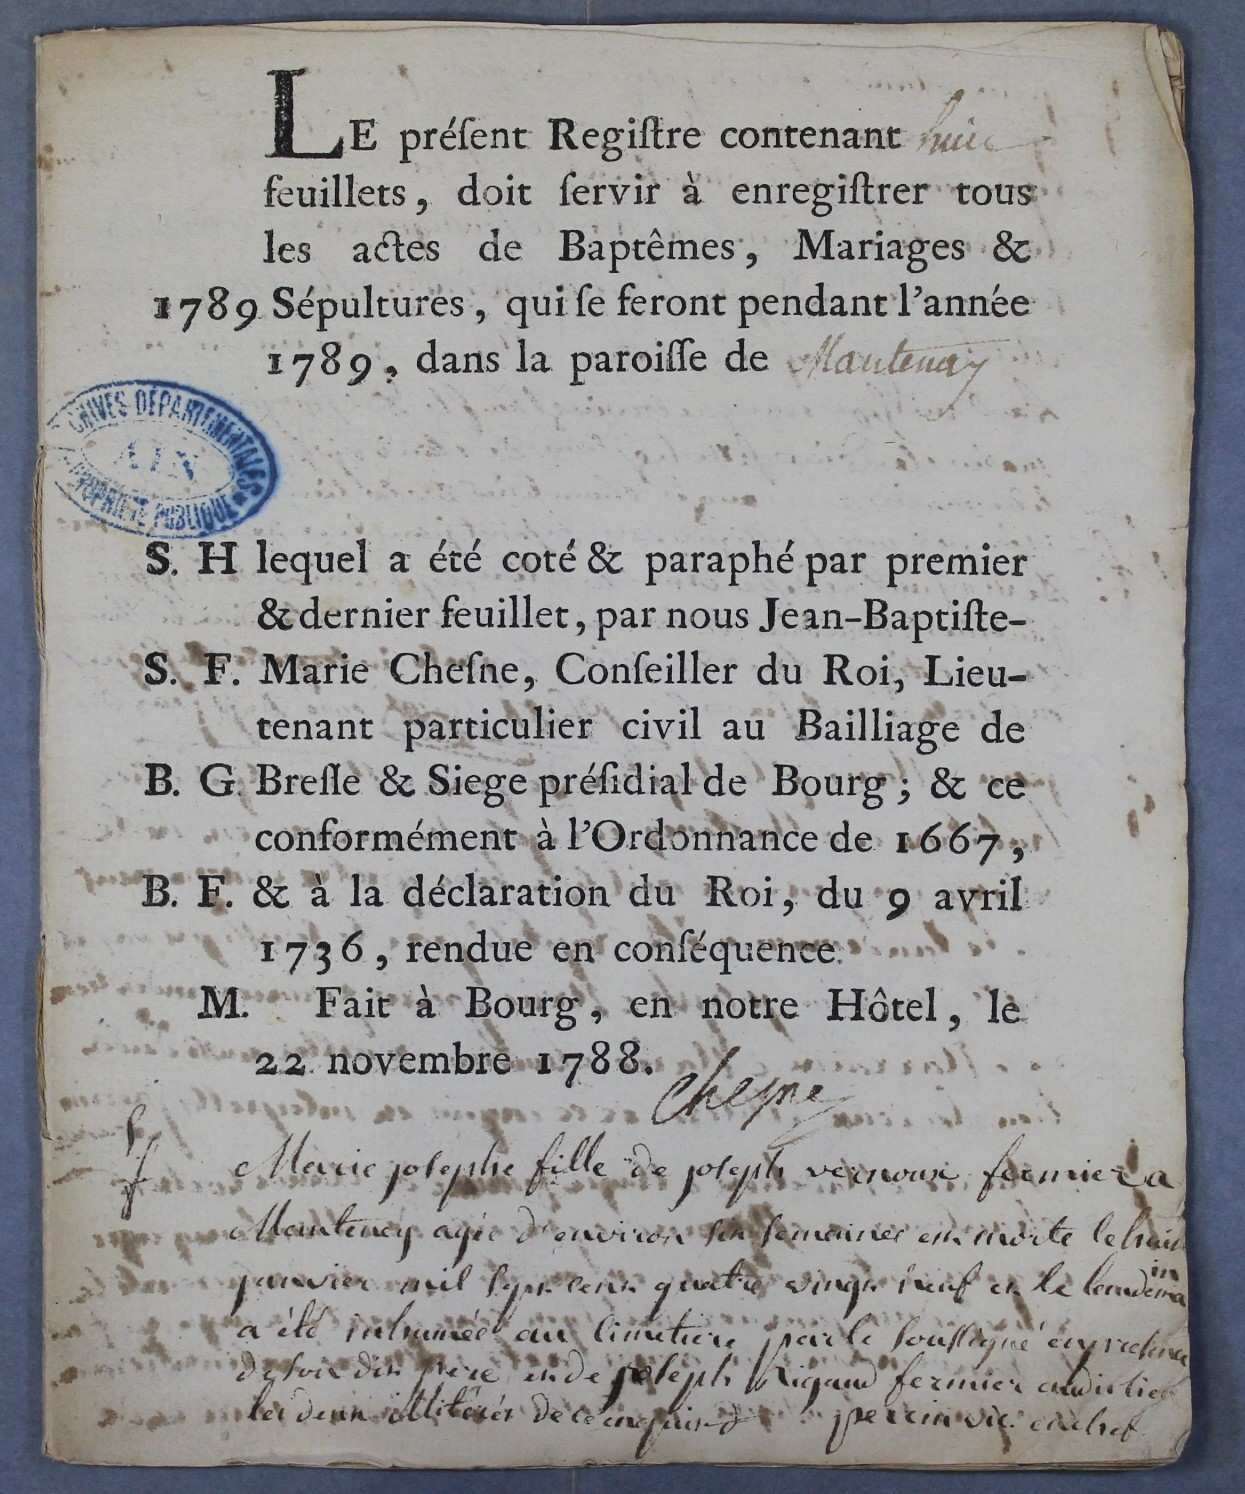 LE préſent Regiſtre contenant huit
feuillets, doit ſervir à enregiſtrer tous
les actes de Baptêmes, Mariages &
1789 Sépultures, qui ſe feront pendant l'année
1789, dans la paroiſſe de Mantenay
ARCHIVES DÉPARTEMENTALES
AIN
PROPRIÉTÉ PUBLIQUE
S. H lequel a été coté & paraphé par premier
& dernier feuillet, par nous Jean-Baptiſte-
S. F. Marie Cheſne, Conſeiller du Roi, Lieu-
tenant particulier civil au Bailliage de
B. G. Breſſe & Siege préſidial de Bourg; & ce
conformément à l'Ordonnance de 1667,
B. F. & à la déclaration du Roi, du 9 avril
1736, rendue en conſéquence.
M. Fait à Bourg, en notre Hôtel, le
22 novembre 1788.
Chesne
S
f Marie josephe fille de joseph vernoux fermier a
Mantenay agée d'environ six semaines est morte le huit
janvier mil sept cent quatre vingt neuf et le lendemain
a été inhumée au cimetiere par le soussigné en présence
de son dit pere et de joseph Rigaud fermier audit lieu
les deux illitérés de ce enquis perrin vic.